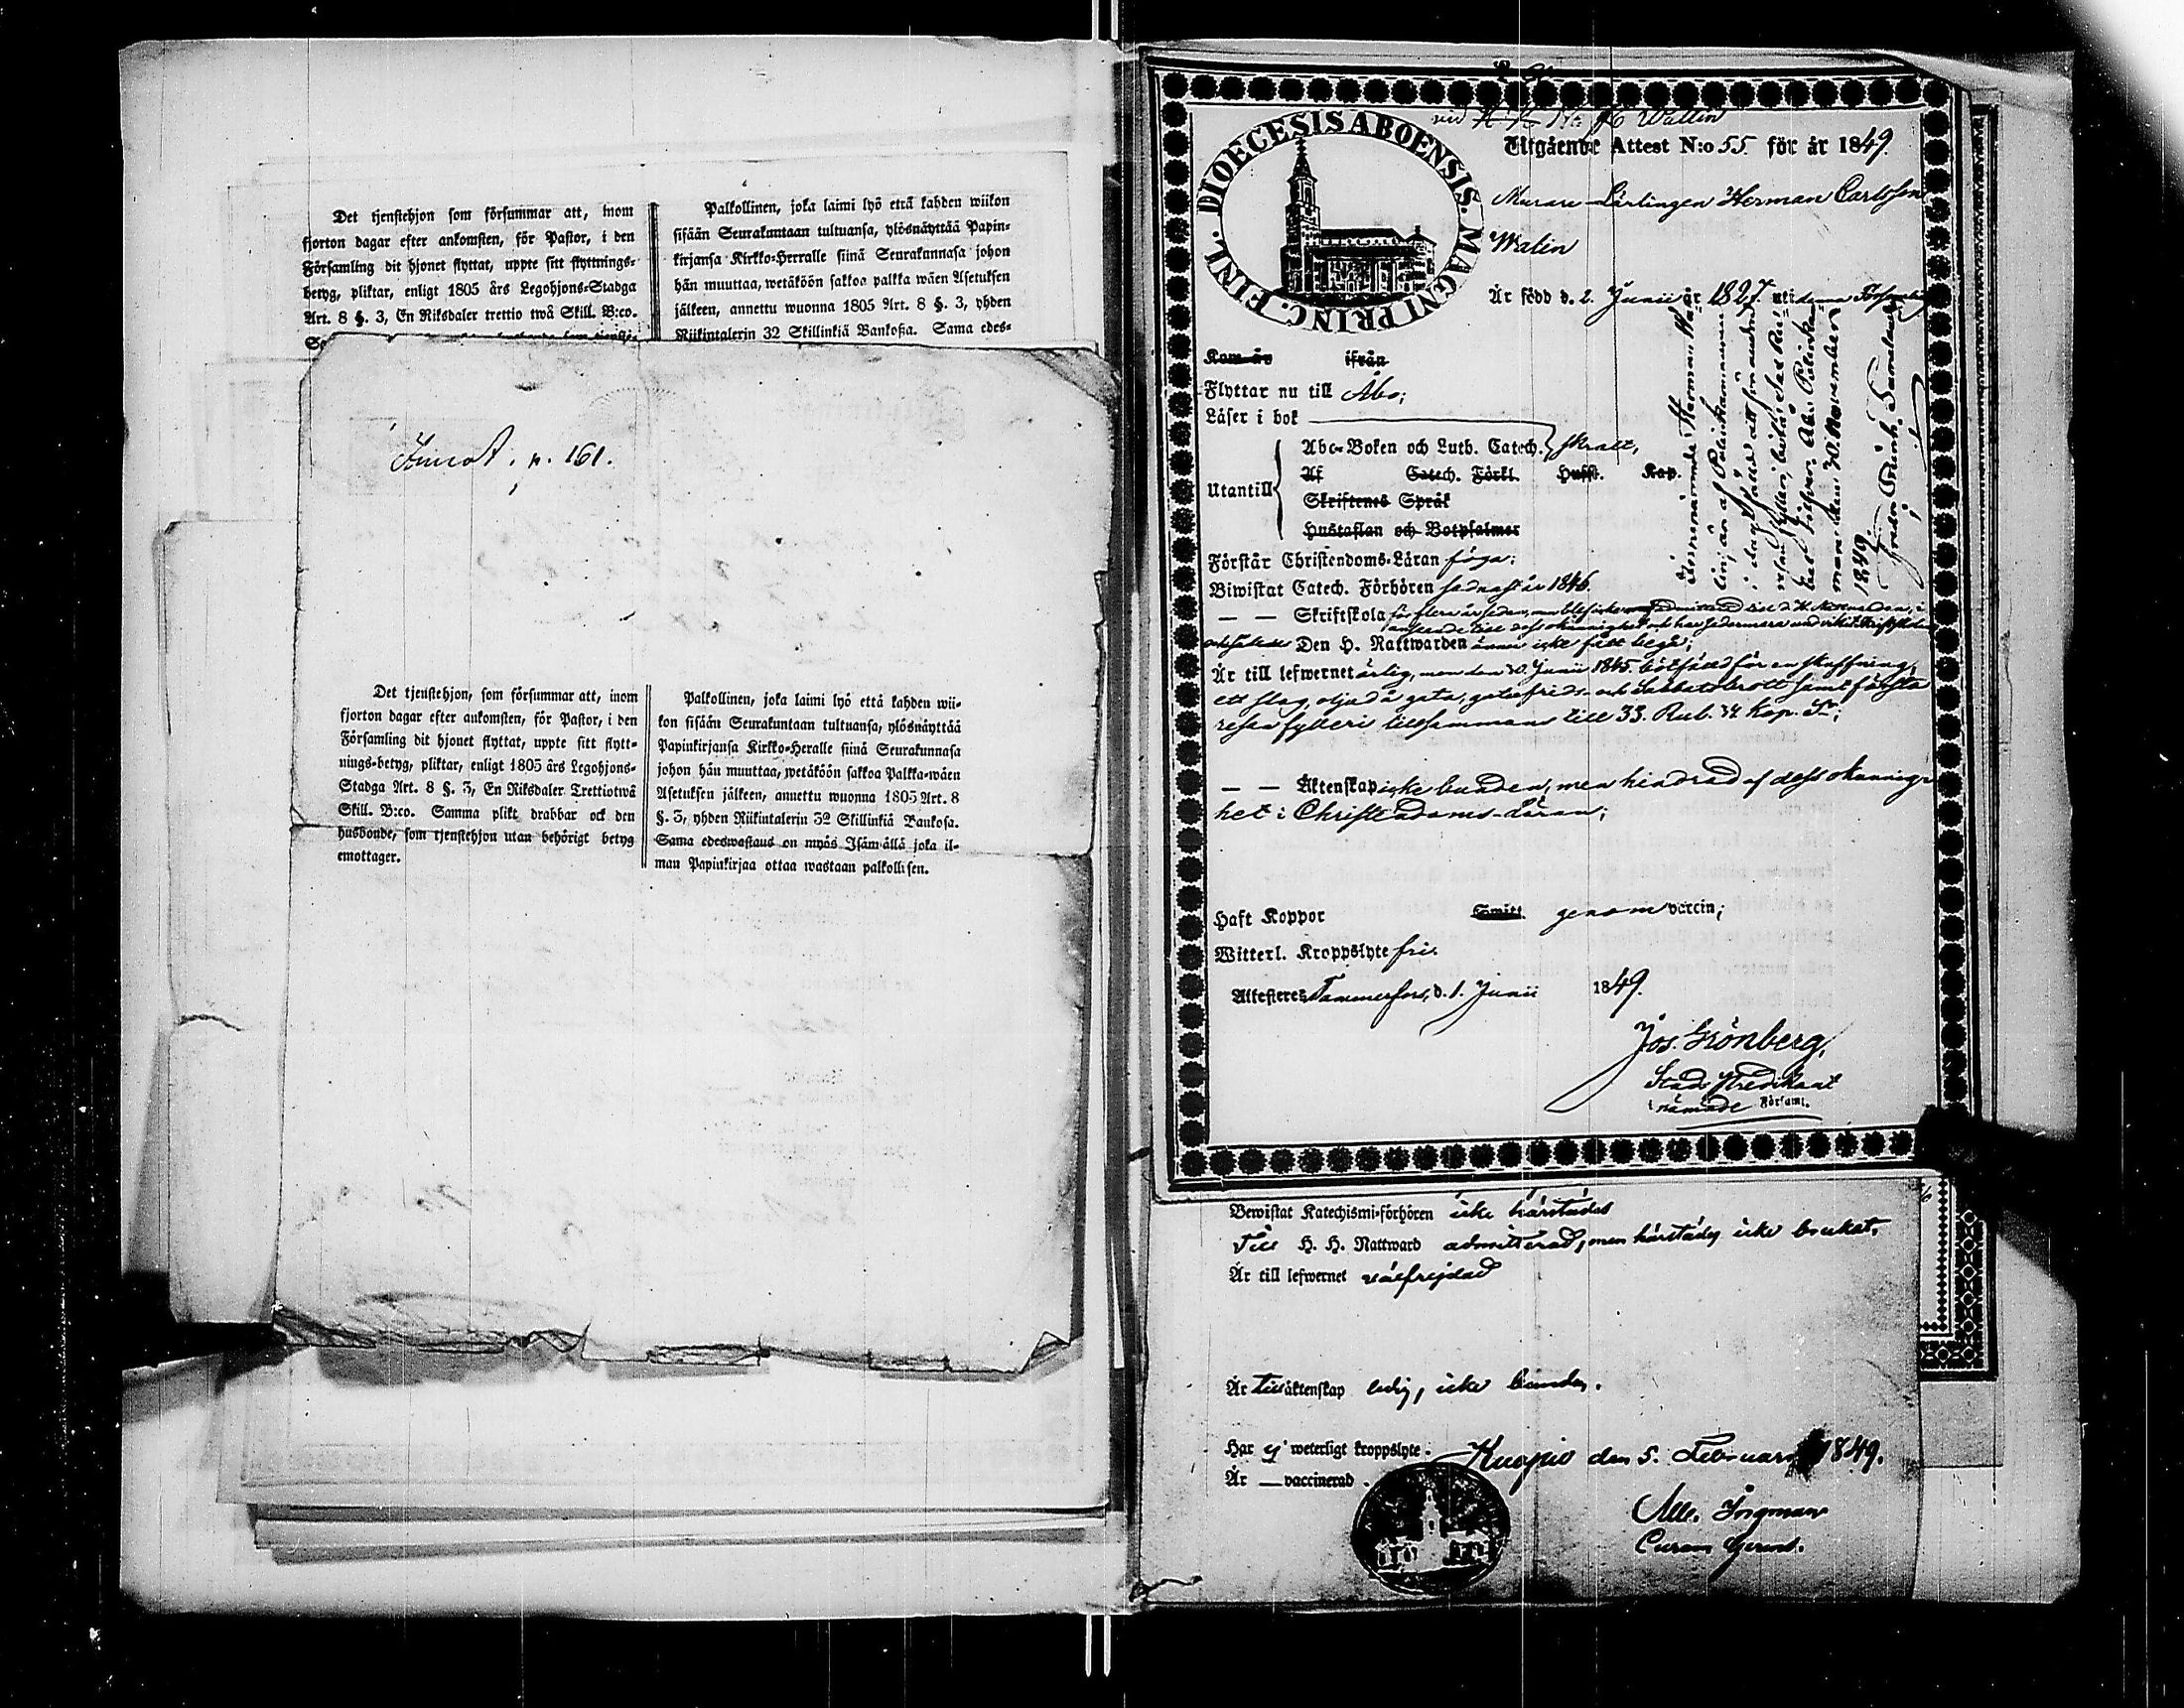 Det tjenstehjon som försummar att, inom
fjorton dagar efter ankomsten, för Pastor, i den
Församling dit hjonet flyttat, uppte sitt flyttnings-
betyg, pliktar, enligt 1805 års Legohjons-Stadga
Art. 8 §. 3, En Riksdaler trettio twå Skill. B:co.
Palkollinen, joka laimi lyö että kahden wiikon
sisään Seurakuntaan tultuansa, ylösnäyttää Papin-
kirjansa Kirkko-Herralle siinä Seurakunnasa johon
hän muuttaa, wetäköön sakkoa palkka wäen Asetuksen
jälkeen, annettu wuonna 1805 Art. 8 §. 3, yhden
Riikintalerin 32 Skillinkiä Bankosa. Sama edes-
p. 161.
Det tjenstehjon, som försummar att, inom
fjorton dagar efter ankomsten, för Pastor, i den
Församling dit hjonet flyttat, uppte sitt flytt-
nings-betyg, pliktar, enligt 1805 års Legohjons-
Stadga Art. 8 §. 3, En Riksdaler Trettiotwå
Skill. B:co. Samma plikt drabbar ock den
husbonde, som tjenstehjon utan behörigt betyg
emottager.
Palkollinen, joka laimi lyö että kahden wii-
kon sisään Seurakuntaan tultuansa, ylösnäyttää
Papinkirjansa Kirkko-Heralle siinä Seurakunnasa
johon hän muuttaa, wetäköön sakkoa Palkka-wäen
Asetuksen jälkeen, annettu wuonna 1805 Art. 8
§. 3, yhden Riikintalerin 32 Skillinkiä Bankosa.
Sama edeswastaus on myös Isäm ällä joka il-
man Papinkirjaa ottaa wastaan palkollisen.
Wallin
DIOECESIS ABOENSIS. MAGNI PRINC. FINL.
Utgående Attest N:o 55 för år 1849.
Murare-Lärlingen Herman Carlsson
Walin
Är född d. 2. Junii år 1827. uti denna Församling
Kom år ifrån
Flyttar nu till Åbo;
Läser i bok
Utantill
Abc-Boken och Luth. Catech. skralt,
Af Catech. Förkl. Hufst. Kap.
Skriftenes Språk
Hustaflan och Botpsalmer
Förstår Christendoms-Läran föga;
Biwistat Catech. Förhören sednast år 1846.
— — Skriftskola för flera år sedan, men blef icke admitterad till d. H. Nattvarden, i
anseende till dess okunnighet och har sedermera undvikit Skriftskolan
Den H. Nattwarden ännu icke fått begå;
Är till lefwernet ärlig, men den 30 Junii 1845 bötfälld för en skuffning,
ett slag, oljud å gata, gatufrids- och Sabbatsbrott samt första
resan fylleri tillsammans till 33. Rub. 34 Kop. Sr;
— — Äktenskap icke bunden, men hindrad af dess okunnig-
het i Christendoms-Läran;
Haft Koppor Smitt genom vaccin;
Witterl. Kroppslyte fri.
Attesteres Tammerfors, d. 1. Junii 1849.
Jos. Grönberg,
Stads Predikant
i nämnde Församl.
i dag fälld att för andra
resan fylleri böta
mare den 30. November
1849.
Bewistat Katechismi-förhören icke härstädes
Till H. H. Nattward admitterad, men härstädes icke brukat.
Är till lefwernet välfrejdad
Är till äktenskap ledig, icke bunden.
Har ej weterligt kroppslyte.
Kuopio den 5. Februari 1849.
Är — vaccinerad.
Alb. Ingman
Curam Gerens.